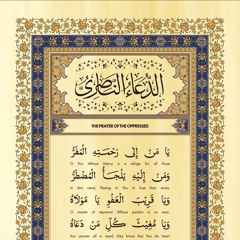 الدعاء الناصري
THE PRAYER OF THE OPPRESSED
يَا مَنْ إِلَى رَحْمَتِهِ الْمَفَرُّ
O You Whose Mercy is a refuge for all those
وَمَنْ إِلَيْهِ يَلْجَأُ الْمُضْطَرُّ
In dire need, fleeing to You to lose their woes,
وَيَا قَرِيبَ الْعَفْوِ يَا مَوْلَاهُ
O master of reprieve! Whose pardon is so near,
وَيَا مُغِيثَ كُلِّ مَنْ دَعَاهُ
You answer all in need; they know that You do hear!